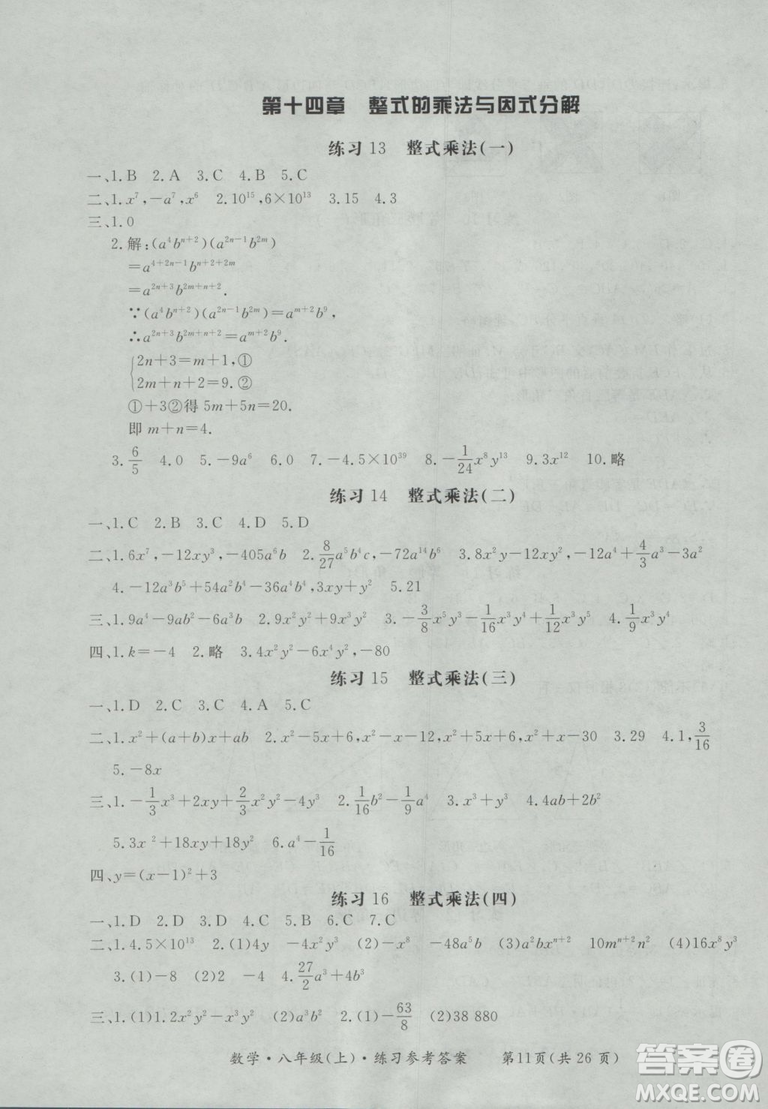 第十四章 整式的乘法与因式分解
练习13 整式乘法(一)
一、1.B 2.A 3.C 4.B 5.C
二、1.x⁷,-a⁷,x⁶ 2.10¹⁵,6×10¹³ 3.15 4.3
三、1.0
2.解:(a⁴bⁿ⁺²)(a²ⁿ⁻¹b²ᵐ)
=a⁴⁺²ⁿ⁻¹bⁿ⁺²⁺²ᵐ
=a²ⁿ⁺³b²ᵐ⁺ⁿ⁺².
∵(a⁴bⁿ⁺²)(a²ⁿ⁻¹b²ᵐ)=aᵐ⁺²b⁹,
∴a²ⁿ⁺³b²ᵐ⁺ⁿ⁺²=aᵐ⁺²b⁹.
{2n+3=m+1,①
2m+n+2=9.②
①+3②得 5m+5n=20.
即 m+n=4.
3.6/5 4.0 5.-9a⁶ 6.0 7.-4.5×10³⁹ 8.-1/24x⁸y¹³ 9.3x¹² 10.略
练习14 整式乘法(二)
一、1.C 2.B 3.C 4.D 5.D
二、1.6x⁷,-12xy³,-35a⁶b 2.8/27a⁵b⁴c,-72a¹⁴b³ 3.8x²-12x,-4a⁴+4/3a³-3a²
4.-12a³b⁵+54a²b⁴-12a²b³,3xy+y² 5.21
三、1.9a⁴-9ab²-6a²b 2.9x²y²+9x³y² 3.-3/8x⁵y³-1/16x³y⁴+1/12x³y⁵ 4.1/9x³+6x²
四、1.k=-4 2.略 3.4x²y²-6x²y,-80
练习15 整式乘法(三)
一、1.D 2.C 3.C 4.A 5.C
二、1.x²+(a+b)x+ab 2.x²-5x+6,x²-x-6,x²+5x+6,x²+x-6 3.29 4.1,3/16
5.-8x
三、1.-1/3x³+2xy+2/3x²y-4y² 2.1/16b²-1/9a² 3.x⁴-16 4.12ab+2b²
5.3x²+18xy+18y² 6.a⁴-1/16
四、y=(x-1)²+3
练习16 整式乘法(四)
一、1.D 2.A 3.A 4.C 5.B 6.C 7.C
二、1.4.5×10¹³ 2.(1)4y-4x²y² (2)-12x⁴y-48a⁵c (3)abxⁿ⁺² 10mⁿ⁺²n² (4)16x⁴y⁶
3.(1)-8 (2)2 4.27/2a³+4b³
三、1.(1)1.2x²y²-x²y (2)-4a+3a² 2.(1)-63/8 (2)38 880
数学·八年级(上)·练习参考答案 第11页(共26页)
作业精灵